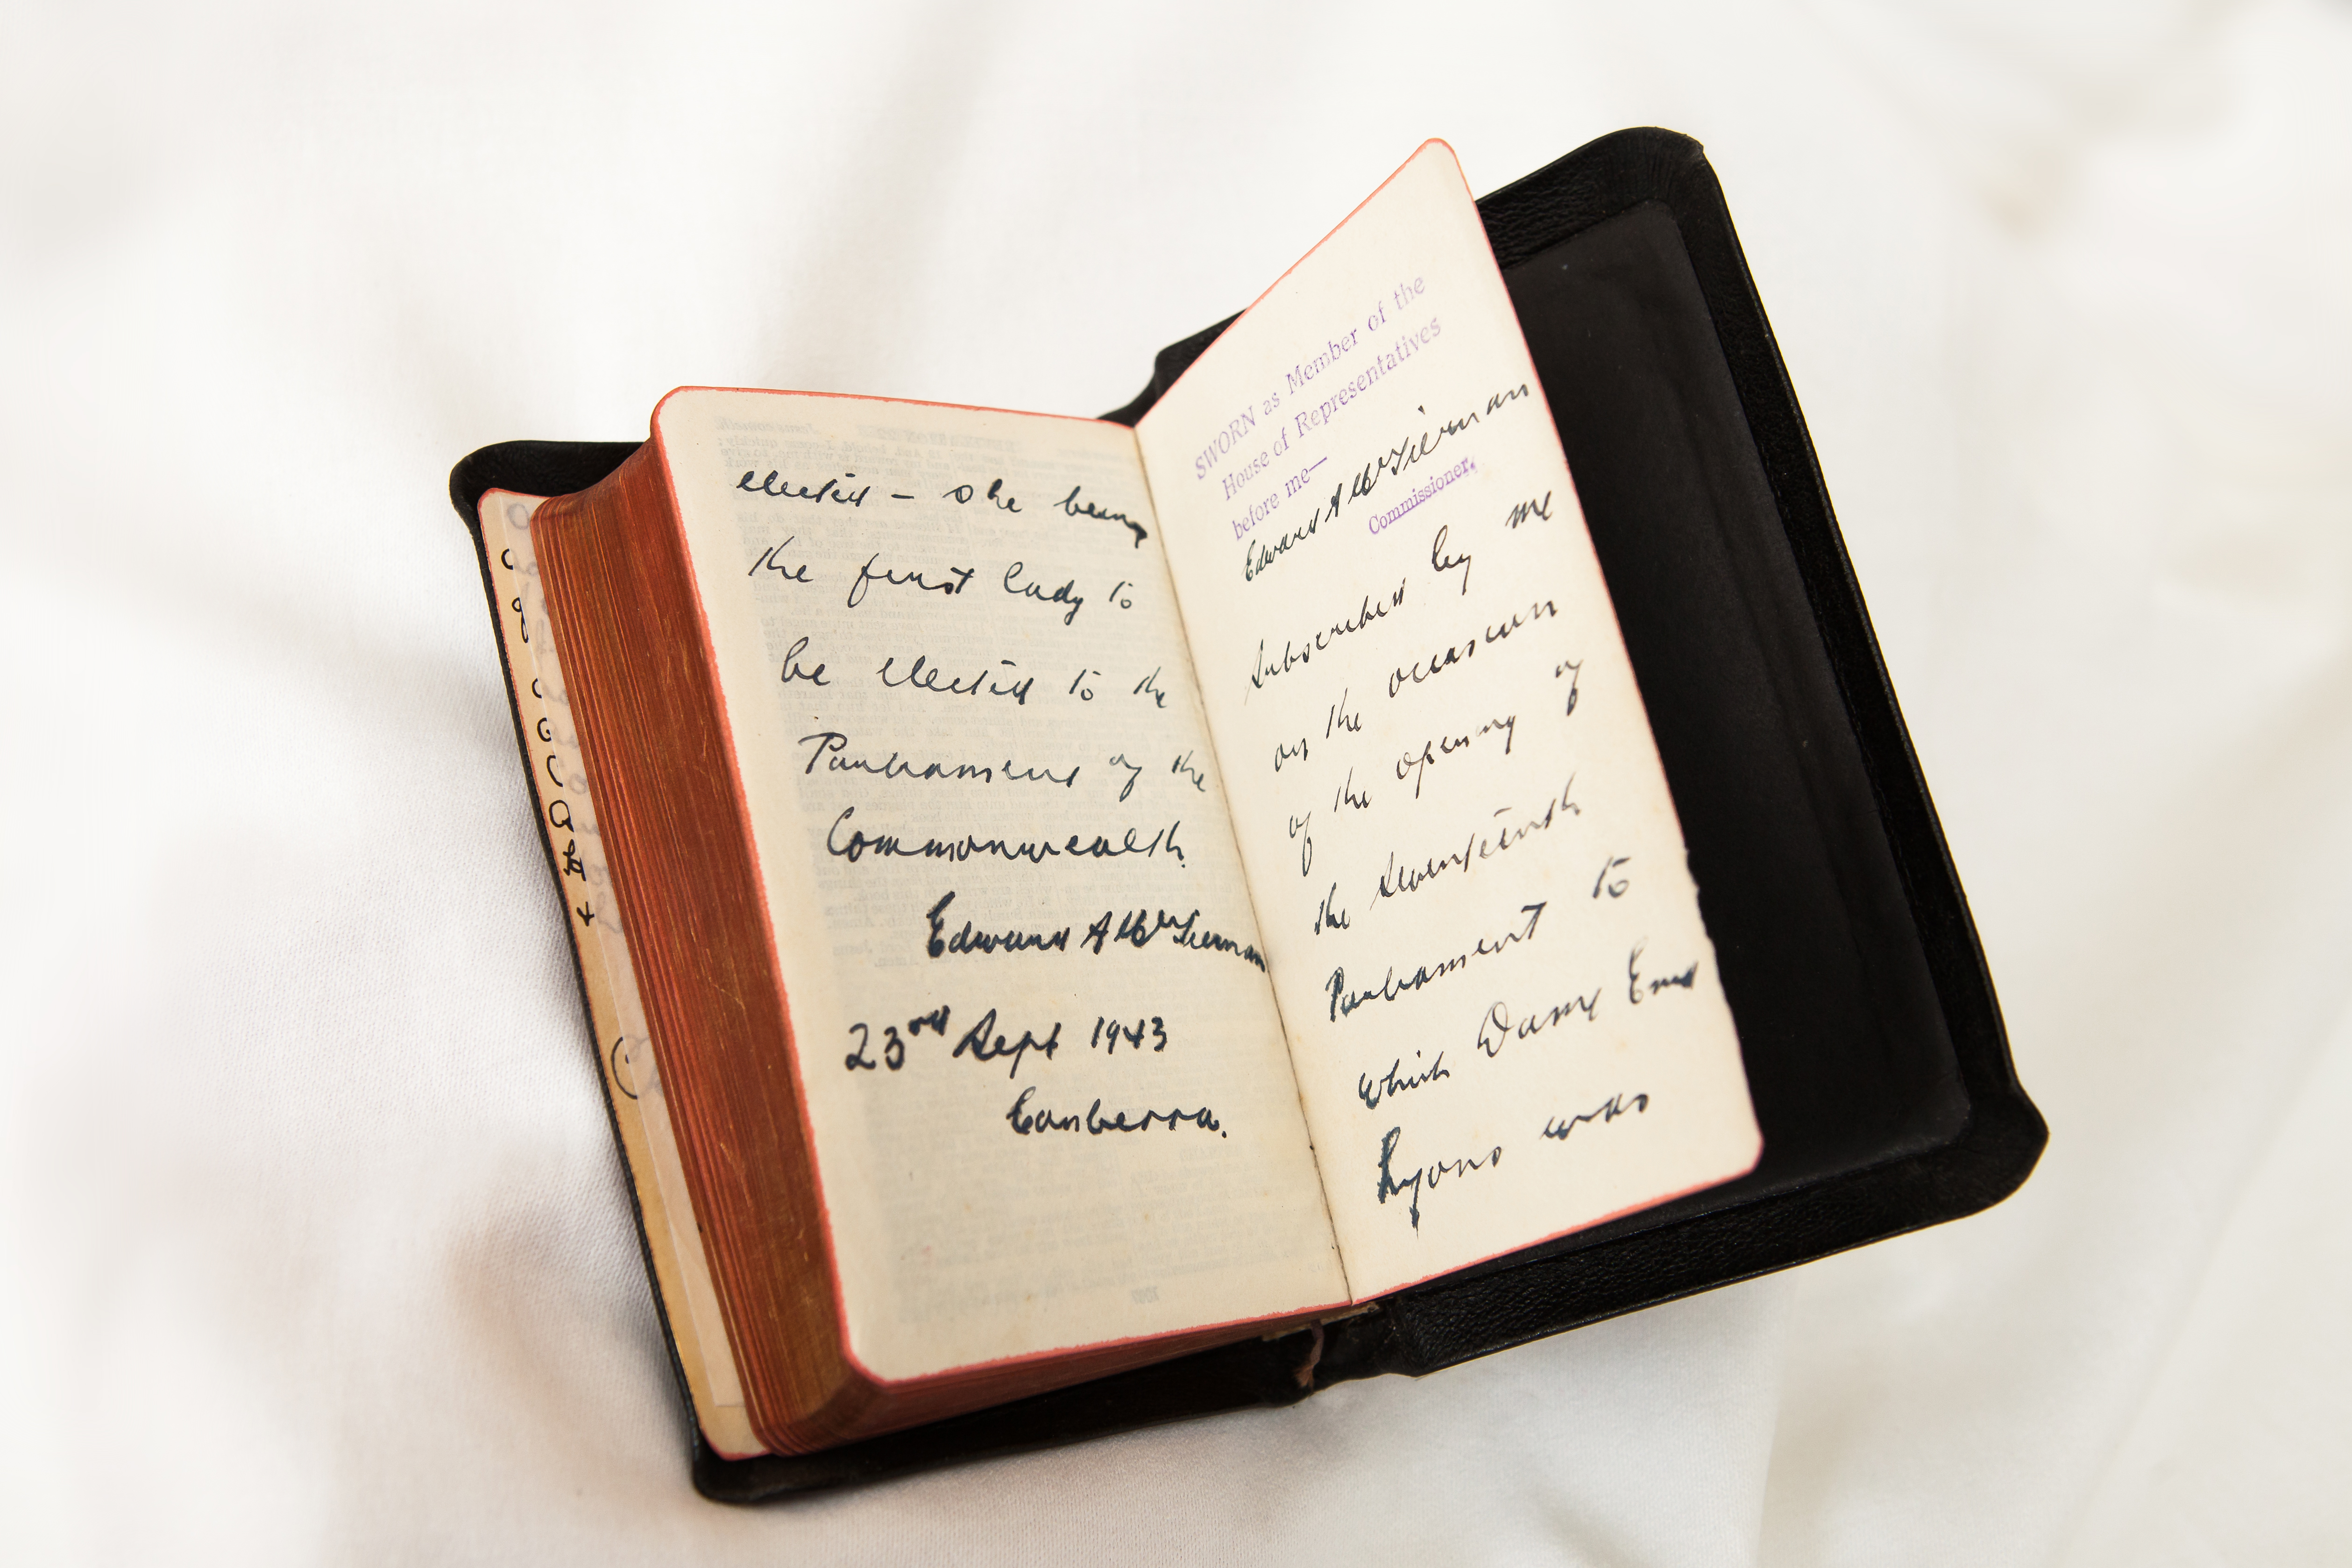 SWORN as Member of the
House of Representatives
before me—
Edward A McTiernan
Commissioner.
Subscribed by me
on the occasion
of the opening of
the Seventeenth
Parliament to
which Dame Enid
Lyons was
elected – she being
the first lady to
be elected to the
Parliament of the
Commonwealth.
Edward A McTiernan
23rd Sept 1943
Canberra.